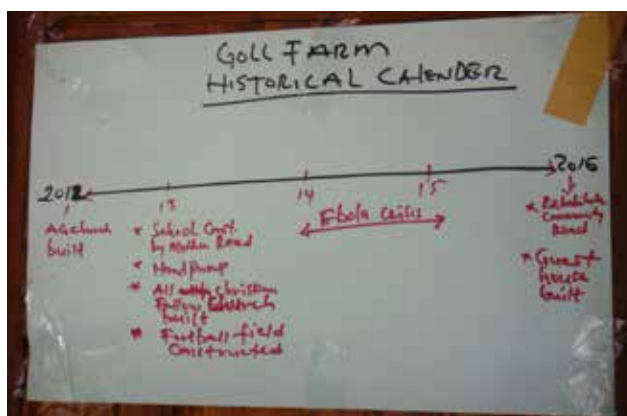 GOLL FARM
HISTORICAL CALENDER
2012
13
14
15
2016
AG church
built
* School Const.
by Mother Read
* Hand pump
* All Christian
Church
built
* Football-field
Constructed
Ebola Crisis
* Rehabilitate
Community
Road
* Guest
house
built